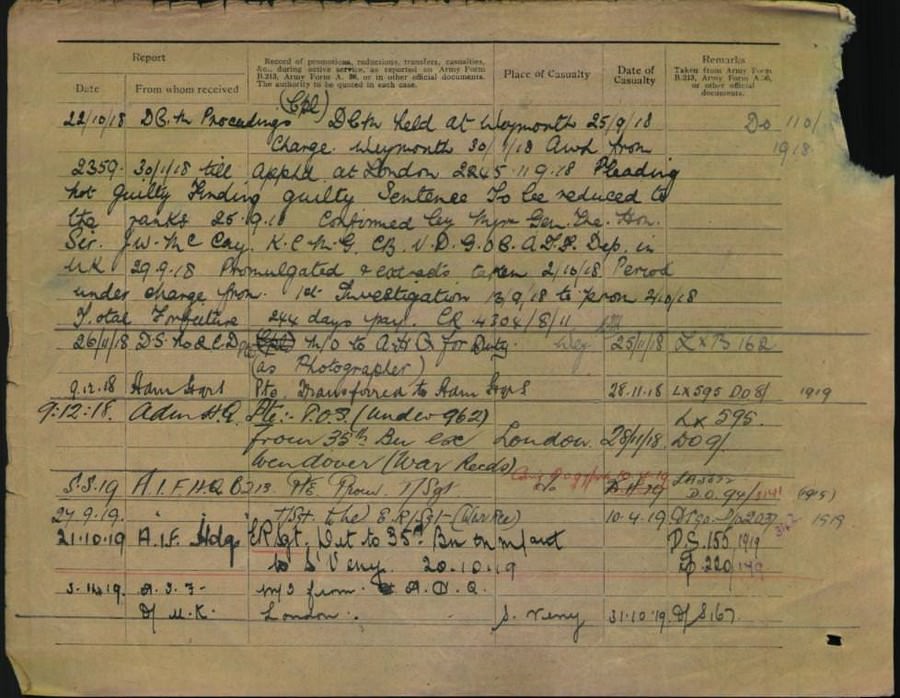 Report
Record of promotions, reductions, transfers, casualties, &c., during active service, as reported on Army Form B.213, Army Form A. 36, or in other official documents. The authority to be quoted in each case.
Place of Casualty
Date of Casualty
Remarks
Taken from Army Form B.213, Army Form A.36, or other official documents.
Date
From whom received
(Cpl)
22/10/18 DCM Proceedings DCM held at Weymouth 25/9/18 DO 110/
Charge. Weymouth 30/ /18 Awl from 1918
2359. 30/1/18 till apphd at London 2245 11 9.18 Pleading
not Guilty Finding guilty Sentence To be reduced to
the ranks 25.9.18 Confirmed by Gen. The. Hon.
Sir. J.W. McCay. K.C.M.G. CB. V.D. G.O.C. A.I.F. Dep. in
UK 29.9.18 Promulgated & extracts taken 2/10/18 Period
under charge from 1st Investigation 13/9/18 to 2/10/18
Total Forfeiture 244 days pay. CR 4304/8/11
26/11/18 Cpl M/O to A.H.Q for Duty Wey 25/11/18 LxB 162
(as Photographer)
9.12.18 Adm Hqrs Pte. Transferred to Adm Hqrs 28.11.18 LX595 DO8/ 1919
9:12:18. Adm H.Q. Pte:- T.O.S. (under 962) Lx 595.
from 35th Bn London 28/11/18 DO9/
Wendover (War Recds)
5.5.19 A.I.F.H.Q. B213 Pte Prom T/Sgt D.O. 94/
27.9.19. " T/Sgt to be E.R/Sgt (War Rec) 10.4.19 1919
21.10.19 A.I.F. Hdq. ER Sgt. Det to 35th Bn
to S Veny. 20.10.19
A.I.F. M/I from A.H.Q.
D/ U.K. London. S. Veny 31.10.19 D/S 167